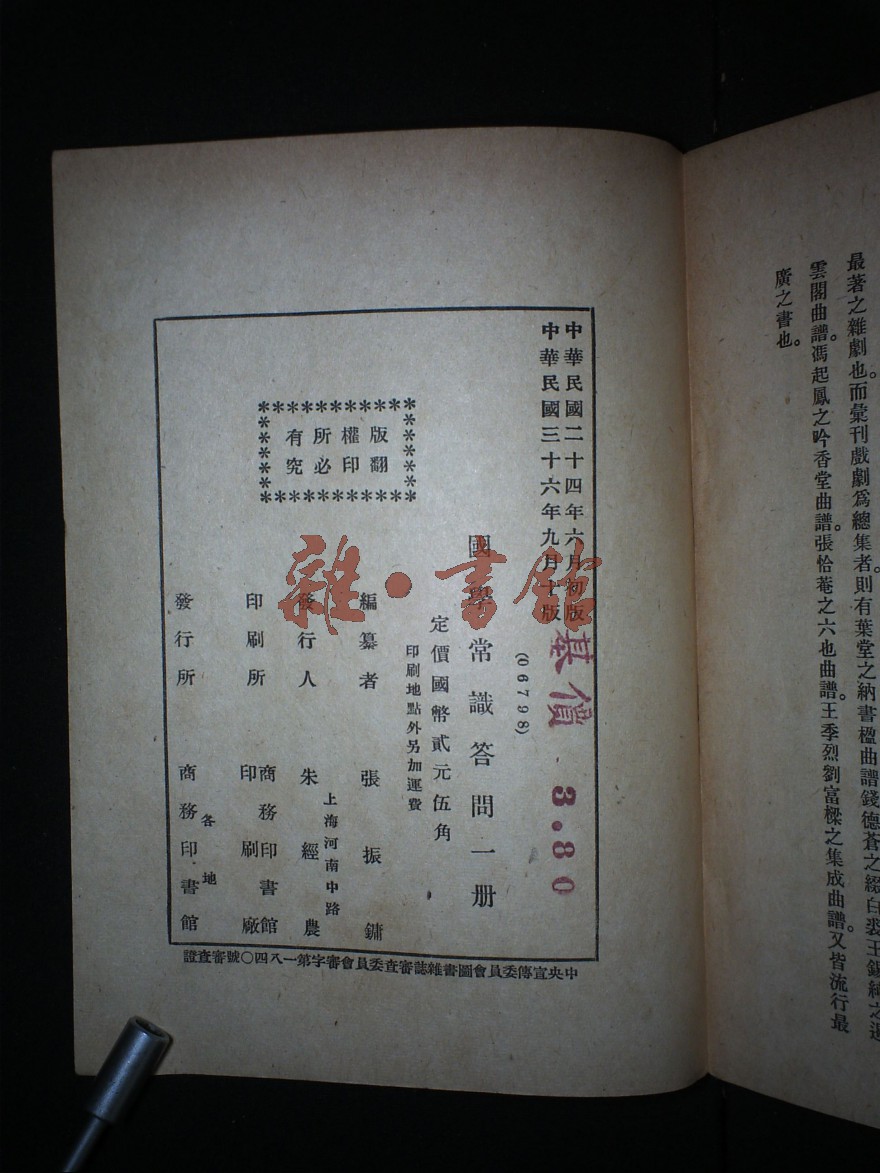 最著之雜劇也。而彙刊戲劇爲總集者。則有葉堂之納書楹曲譜。錢德蒼之綴白裘。王錫純之遏
雲閣曲譜。馮起鳳之吟香堂曲譜。張怡菴之六也曲譜。王季烈劉富樑之集成曲譜。又皆流行最
廣之書也。
中華民國二十四年六月初版
中華民國三十六年九月十版
基價 3.80
(06798)
國學常識答問一册
定價國幣貳元伍角
印刷地點外另加運費
版權所有
翻印必究
編纂者 張振鏞
上海河南中路
發行人 朱經農
印刷所 商務印書館印刷廠
發行所 各地商務印書館
中央宣傳委員會圖書雜誌審查委員會審字第一八四〇號審查證
雜·書館